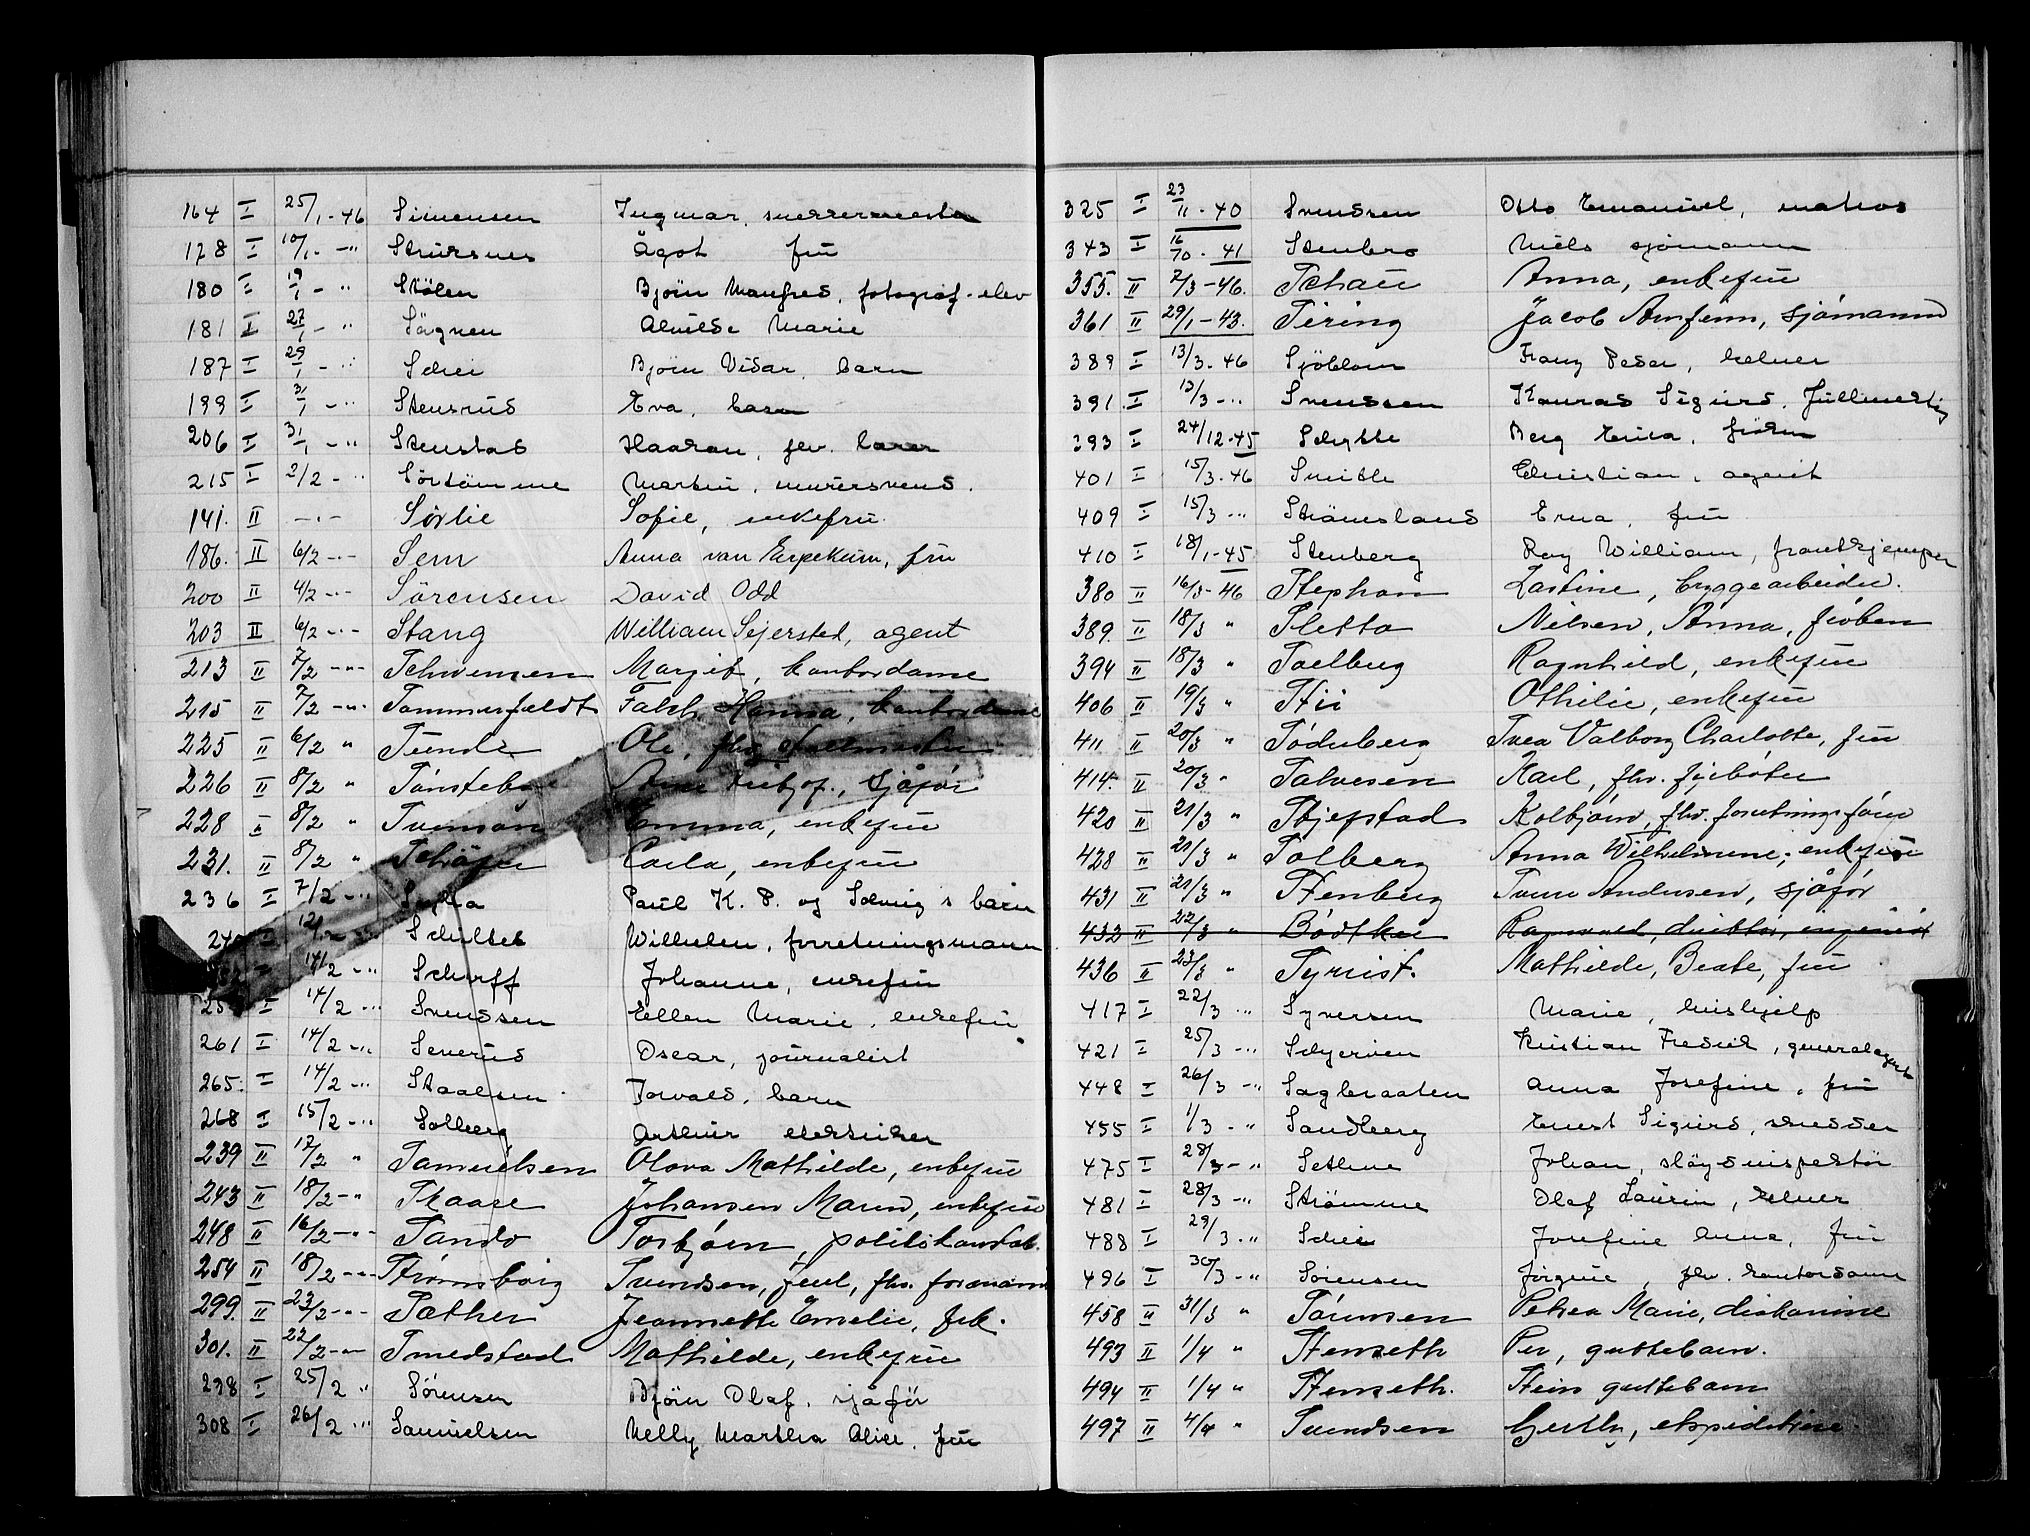 164 I 25/1-46 Simensen Ingmar, snekkermester
178 I 10/1 - " Strursnes Ågot fru
180 I 19/1 - " Stölen Björn Manfred, fotograf-elev
181 I 27/1 - " Sögnen Alvilde Marie
187 I 29/1 - " Schei Björn Vidar, barn
199 I 31/1 - " Stensrud Eva, barn
206 I 31/1 - " Stenstad Haakon, fhv. barer
215 I 2/2 - " Sörtömme Martin, murersvend.
141. II - " - Sørlie Sofie, enkefru.
186. II 6/2 - " - Sem Anna van Erpekum, fru
200 II 4/2 - " - Sörensen David Odd
203 II 6/2 - " - Stang William Sejersted, agent
213 II 7/2 - " - Schwensen Margit, kontordame
215 II 7/2 - " - Sommerfeldt Falch Hanna, kontordame
225 II 6/2 " Sunde Ole, fhv. stallmester
226 II 8/2 " Arne Fritjof, sjåfør
228 II 8/2 " Svenson Emma, enkefru
231. II 8/2 " Schäfer Carla, enkefru
236 I 7/2 - " Paul K. P. og Solveig s barn
240 I 12/2 Schultes Wilhelm, forretningsmann
14/2 - " Scharff Johanne, enkefru
I 14/2 - " Svendsen Ellen Marie, enkefru
261 I 14/2 - " Severud Oscar, journalist
265. I 14/2 - " Staalsen Torvald, barn
268 I 15/2 - " Solberg Arthur elektriker
239 II 17/2 " Samuelsen Olava Mathilde, enkefru
243 II 18/2 - " Skaare Johansen Maren, enkefru
248 II 16/2 - " - Sando Torbjørn, politikonstab.
254 II 18/2 - " - Strømsborg Svendsen, Juul, fhv. formann
299. II 23/2 - " - Sæther Jeannette Emelie, frk.
301. II 22/2 - " - Smedstad Mathilde, enkefru
298 I 25/2 " Sörensen Björn Olaf, sjåför
308 I 26/2 " Samuelsen Nelly Martha Alice, fru
325 I 23/11-40 Svendsen Otto Emanuel, matros
343 I 16/10-41 Stenbro Niels sjömann
355. II 7/3-46. Schau Anna, enkefru
361 II 29/1-43. Siring Jacob Arnfinn, sjömann
389 I 13/3-46 Sjöblom Franz Peder, kelner
391. I 13/3 - " Svendsen Konrad Sigurd, fullmektig
393 I 24/12-45 Schytte Berg Erica, fröken
401 I 15/3-46 Smith Christian, agent
409 I 15/3 - " Strömsland Erna, fru
410 I 18/1-45 Stenberg Roy William, frontkjemper
380 II 16/3-46 Stephan Zastine, bryggearbeider.
389. II 18/3 " Sletto Nielsen, Anna, frøken
394 II 18/3 " Solberg Ragnhild, enkefru
406 II 19/3 " Stii Othilie, enkefru
411 II 20/3 " Søderberg Svea Valborg Charlotte, fru
414. II 20/3 " Salvesen Karl, fhv. fyrbøter
420 II 21/3 " Skjefstad Kolbjørn, fhv. forretningsfører
428 II 21/3 " Solberg Anna Wilhelmine, enkefru
431 II 21/3 " Stenberg Svein Andersen, sjåfør
432 II 22/3 " Bødtker Ragnvald, direktør, ingeniør
436 II 23/3 " Syrrist. Mathilde, Beate, fru
417 I 22/3 - " Syversen Marie, hushjelp
421 I 25/3 - " Schjerven Kristian Fredrik, generalagent
448 I 26/3 - " Sagbraaten Anna Josefine, fru
455 I 1/3 - " Sandberg Ernst Sigurd, skredder
475 I 28/3 - " Setlme Johan, slöydinspektör
481 I 28/3 - " Strömme Olaf Laurin, kelner
488 I 29/3 - " Schei Josefine Anna, fru
496 I 30/3 - " Sörensen Jörgine, fhv. kontordame
458 II 31/3 " Sörensen Petrea Marie, diakonisse
493 II 1/4 " Stenseth Per, guttebarn.
494 II 1/4 " Stenseth. Stein guttebarn
497 II 4/4 " Svendsen Gerthy, ekspeditrise